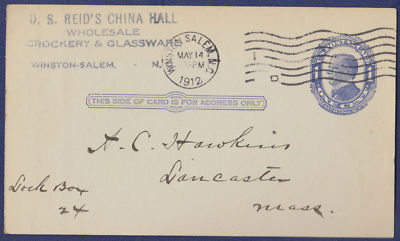 D. S. REID'S CHINA HALL
WHOLESALE
CROCKERY & GLASSWARE
WINSTON-SALEM, N.
WINSTON SALEM, N.C.
MAY 14
PM
1912
D
THIS SIDE OF CARD IS FOR ADDRESS ONLY
A. C. Hawkins
Lancaster
Mass.
Lock Box
24